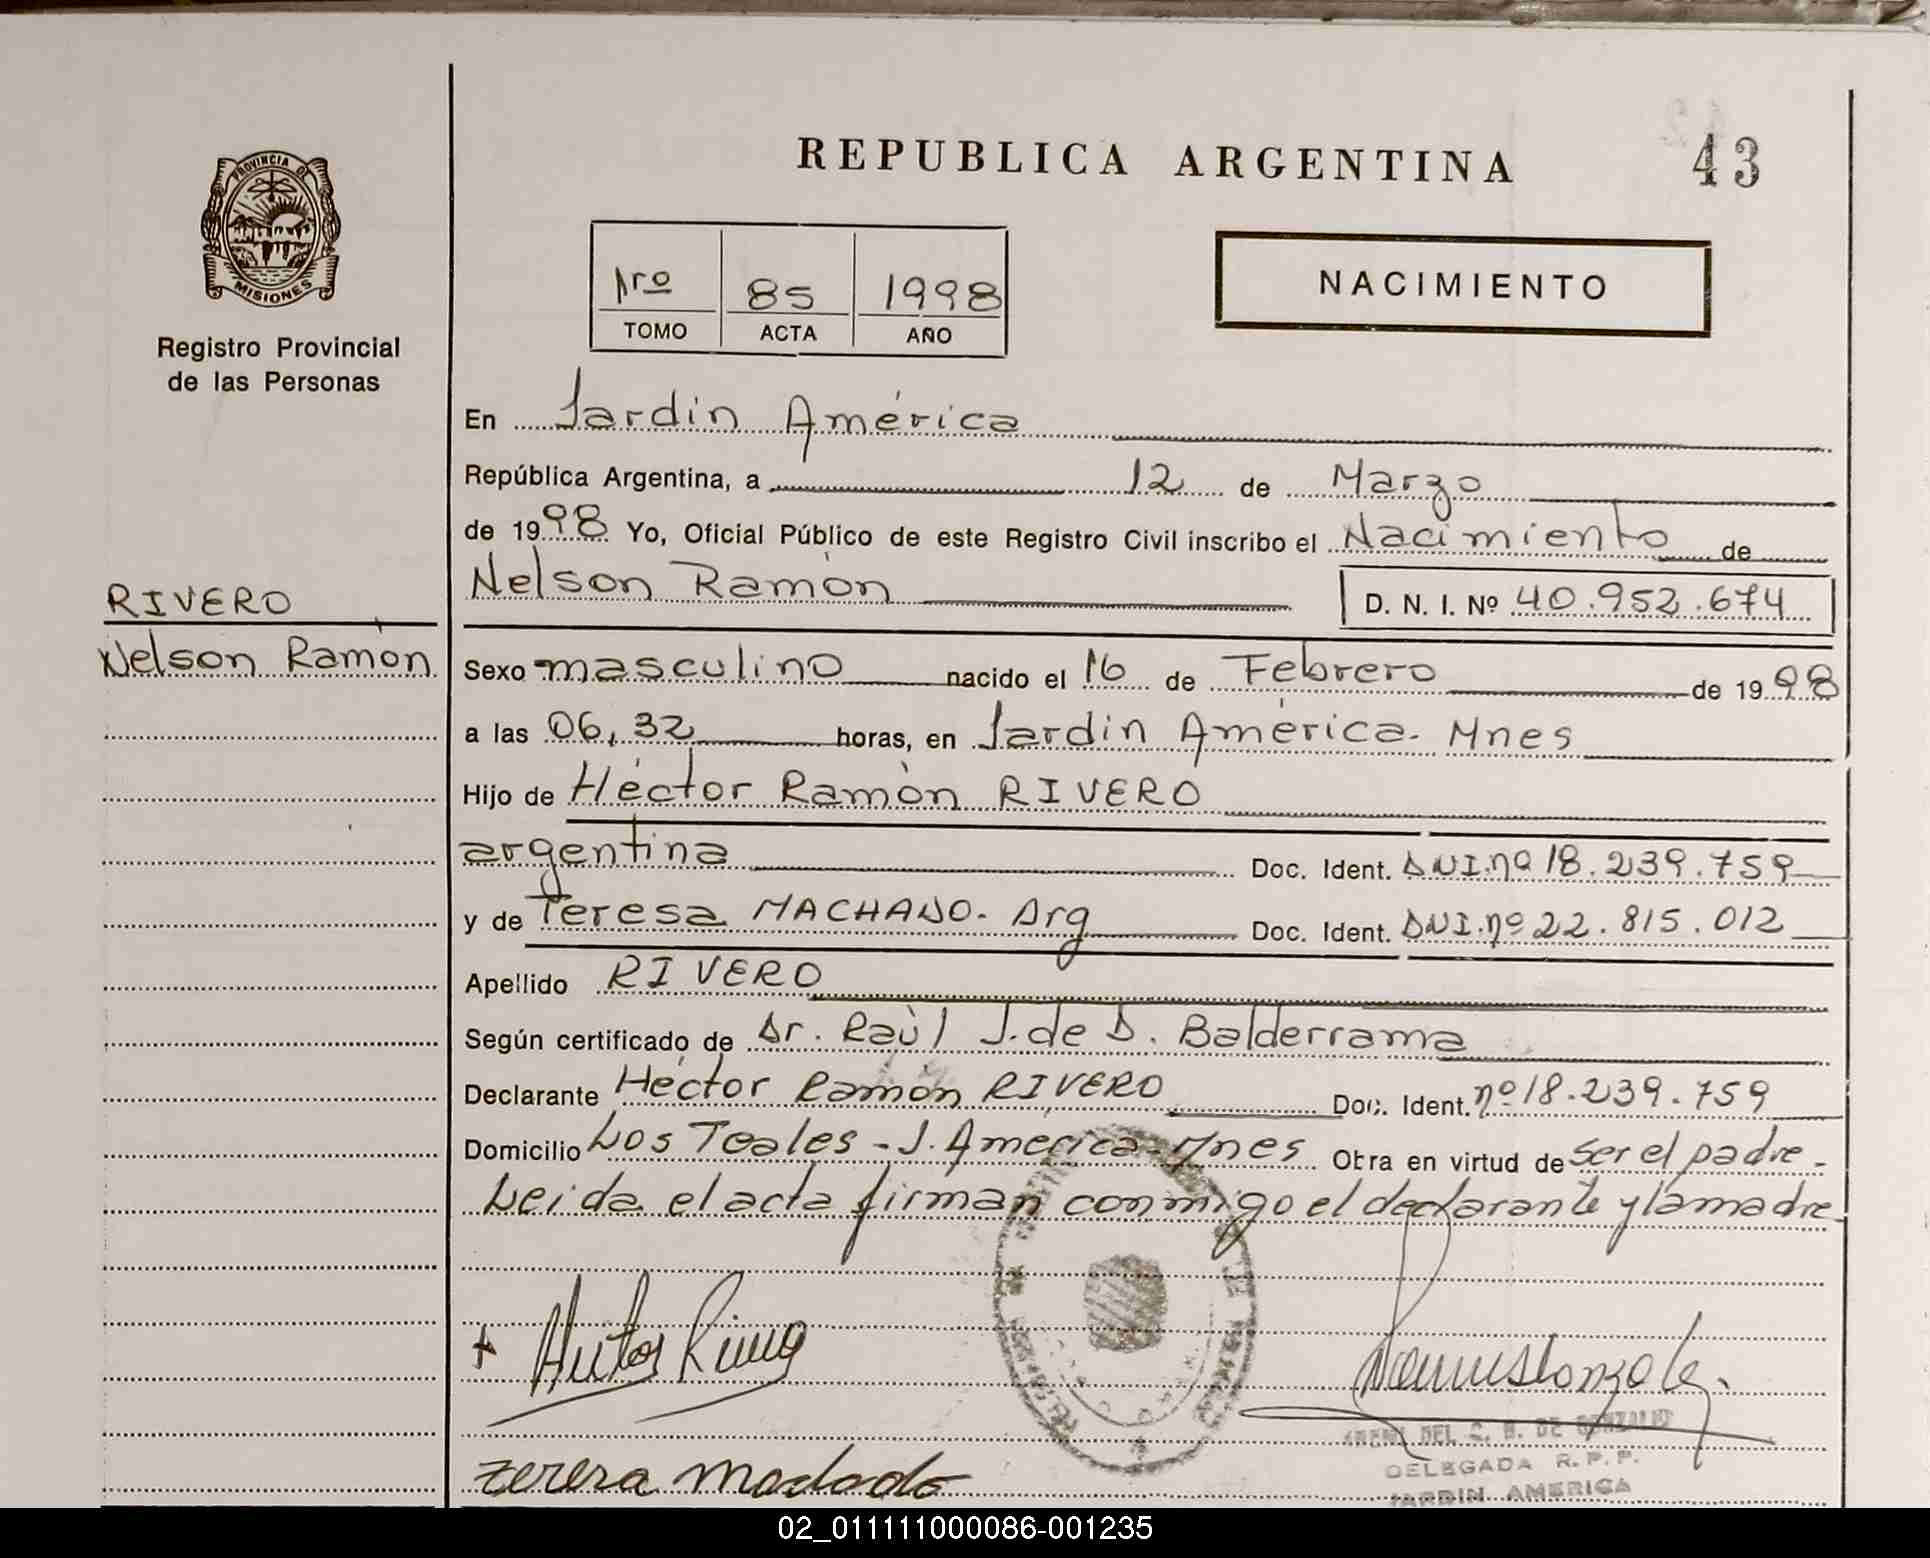 REPUBLICA ARGENTINA
43
PROVINCIA DE
MISIONES
Registro Provincial
de las Personas
1ro 85 1998
TOMO ACTA AÑO
NACIMIENTO
En Jardín América
República Argentina, a 12 de Marzo
de 1998 Yo, Oficial Público de este Registro Civil inscribo el Nacimiento de
Nelson Ramón D. N. I. Nº 40.952.674
RIVERO
Nelson Ramón
Sexo masculino nacido el 16 de Febrero de 1998
a las 06,32 horas, en Jardín América. Mnes
Hijo de Héctor Ramón RIVERO
argentina Doc. Ident. DNI.nº 18.239.759
y de Teresa MACHADO. Arg Doc. Ident. DNI.nº 22.815.012
Apellido RIVERO
Según certificado de Dr. Raúl J. de D. Balderrama
Declarante Héctor Ramón RIVERO Doc. Ident. nº 18.239.759
Domicilio Los Teales - J. América - Mnes Obra en virtud de ser el padre -
Leida el acta firman conmigo el declarante y la madre
DEL C. B. DE GONZALEZ
DELEGADA R.P.P.
JARDIN AMERICA
02_011111000086-001235